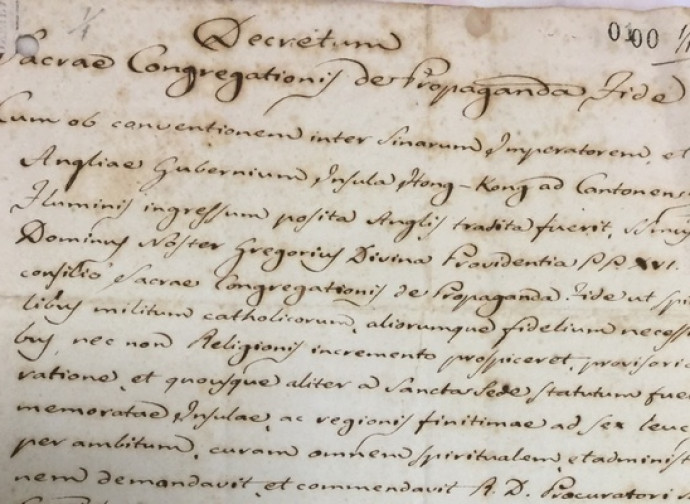 0100
Decretum
Sacrae Congregationis de Propaganda Fide
Cum ob conventionem inter Sinarum Imperatorem, et
Angliae Gubernium Insula Hong-Kong ad Cantonens
Fluminis ingressum posita Anglis tradita fuerit, SSmus
Dominus Noster Gregorius Divina Providentia PP. XVI.
consilio Sacrae Congregationis de Propaganda Fide ut spi
libus militum catholicorum, aliorumque fidelium necessi
bus, nec non Religionis incremento prospiceret, provisoria
ratione, et quousque aliter a Sancta Sede statutum fue
memoratae Insulae, ac regionis finitimae ad sex leuc
per ambitum, curam omnem spiritualem, et administ
nem demandavit, et commendavit R. D. Procuratori